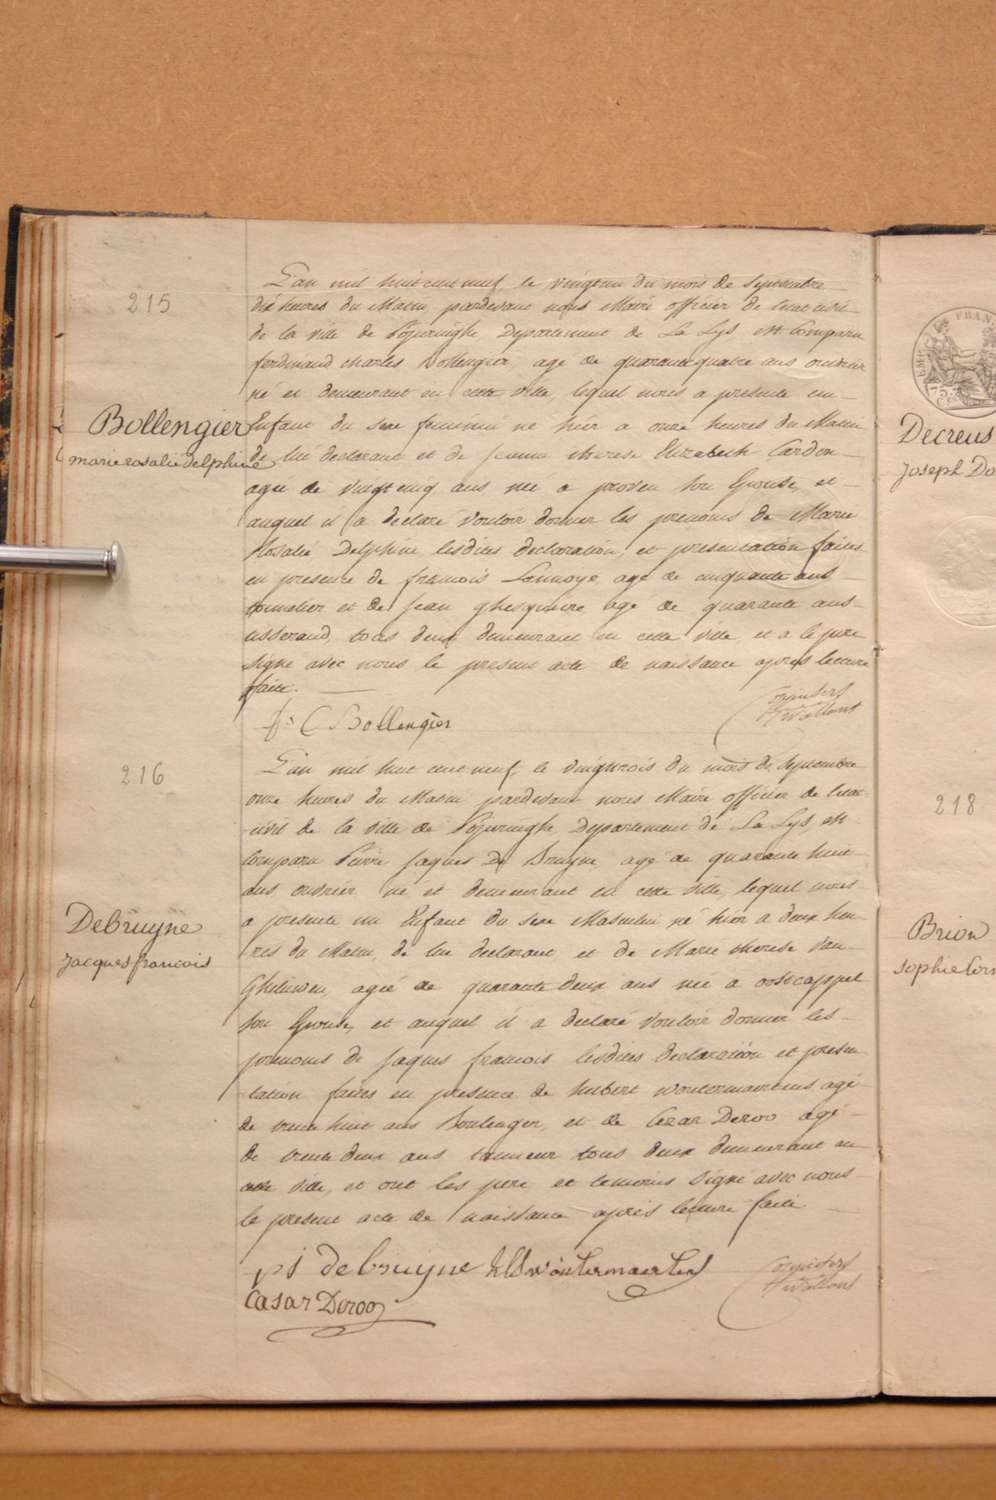 215
L'an mil huit cent neuf, le vingt un du mois de Septembre
dix heures du Matin, pardevant nous Maire officier de l'etat civil
de la ville de Poperinghe Departement de La Lys est Comparu
ferdinand charles Bollengier, agé de quarante quatre ans ouvrier
né et demeurant en cette ville, lequel nous a presenté un
Bollengier
marie rosalie delphine
Enfant du sexe feminin né hier a onze heures du Matin
de lui declarant et de jeanne therese Elizabeth Cardon
agée de vingt cinq ans née a proven son Epouse, et
auquel il a declaré vouloir donner les prenoms de Marie
Rosalie Delphine lesdites declaration et presentation faites
en presence de françois Lannoye agé de cinquante ans
tonnelier et de jean ghesquiere agé de quarante ans
tisserand, tous deux demeurant en cette ville, et a le pere
signé avec nous le present acte de naissance après lecture
faite.
f: C Bollengier
216
L'an mil huit cent neuf, le vingt trois du mois de Septembre
onze heures du Matin pardevant nous Maire officier de l'etat
civil de la ville de Poperinghe Departement de La Lys, est
Comparu Pierre Jaques De Bruyne, agé de quarante huit
ans ouvrier né et demeurant en cette ville, lequel nous
Debruyne
jacques francois
a presenté un Enfant du sexe Masculin né hier a deux heu-
res du Matin, de lui declarant et de Marie therese Van
Gheluwen, agée de quarante deux ans née a oostcappel
son Epouse, et auquel il a declaré vouloir donner les
prenoms de Jaques francois lesdites declaration et presen
tation faites en presence de hubert woutermaertens agé
de trente huit ans Boulenger, et de Cezar Deroo agé
de trente deux ans tanneur tous deux demeurant en
cette ville, et ont les pere et temoins signé avec nous
le present acte de naissance après lecture faite
pj debruyne woutermaertens
Casar Deroo
Decreus
Joseph Do
218
Brion
sophie Corn